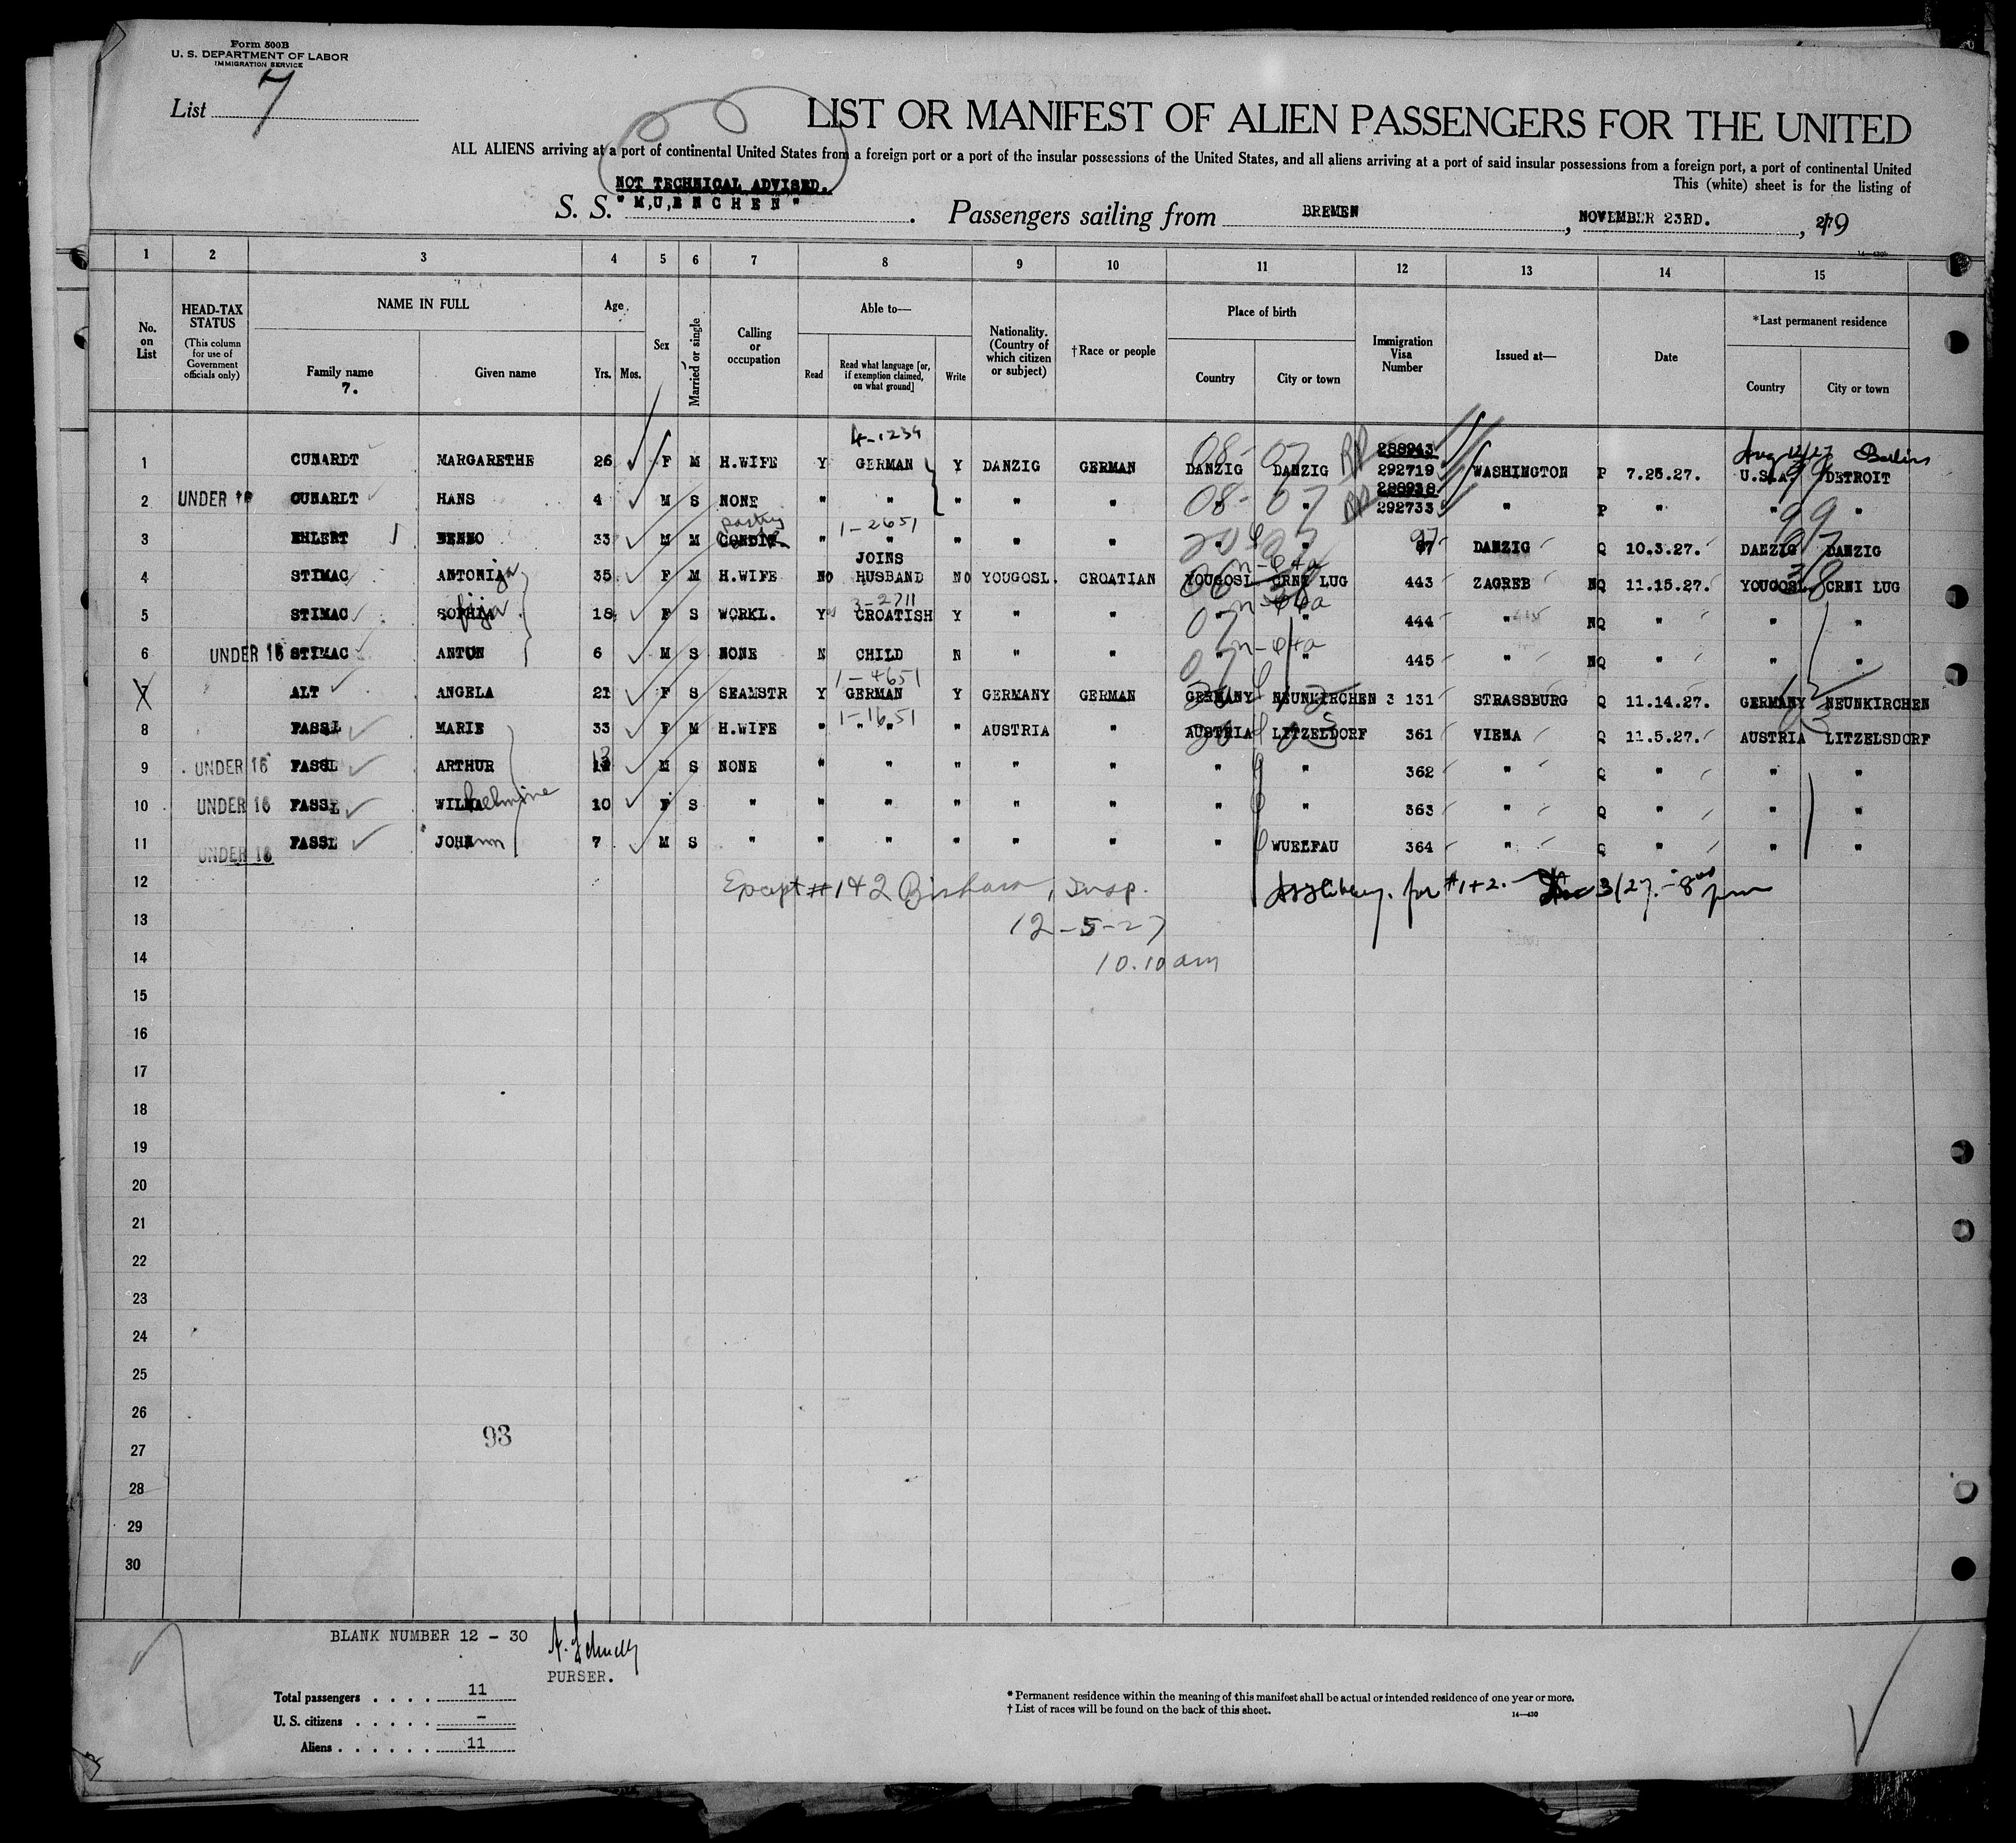 Form 500B
U. S. DEPARTMENT OF LABOR
IMMIGRATION SERVICE
List 7
LIST OR MANIFEST OF ALIEN PASSENGERS FOR THE UNITED
ALL ALIENS arriving at a port of continental United States from a foreign port or a port of the insular possessions of the United States, and all aliens arriving at a port of said insular possessions from a foreign port, a port of continental United
This (white) sheet is for the listing of
NOT TECHNICAL ADVISED.
S. S. "M,U,ENCHEN" . Passengers sailing from BREMEN , NOVEMBER 23RD. , 19 27
14—430
1 2 3 4 5 6 7 8 9 10 11 12 13 14 15
No. on List
HEAD-TAX STATUS (This column for use of Government officials only)
NAME IN FULL
Family name
7.
Given name
Age
Yrs. Mos.
Sex
Married or single
Calling or occupation
Able to—
Read
Read what language [or, if exemption claimed, on what ground]
Write
Nationality. (Country of which citizen or subject)
†Race or people
Place of birth
Country
City or town
Immigration Visa Number
Issued at—
Date
*Last permanent residence
Country
City or town
4-1234
288943 Aug 12/27 Berlin
1 CUNARDT MARGARETHE 26 F M H.WIFE Y GERMAN Y DANZIG GERMAN DANZIG DANZIG 292719 WASHINGTON P 7.26.27. U.S.A. DETROIT
08- 07 RP 99
288918
2 UNDER 16 CUNARDT HANS 4 M S NONE " " " " " " " 292733 " P " " "
08- 07 RP 99
pastry 1-2651
3 EHLERT BENNO 33 M M CONDIT. " " " " " " " 97 DANZIG Q 10.3.27. DANZIG DANZIG
JOINS
4 STIMAC ANTONIJA 35 F M H.WIFE NO HUSBAND NO YOUGOSL. CROATIAN YOUGOSL. CRNI LUG 443 ZAGREB NQ 11.15.27. YOUGOSL. CRNI LUG
n-4a
3-2711
5 STIMAC SOFIJA 18 F S WORKL. Y CROATISH Y " " " " 444 " NQ " " "
n-4a
6 UNDER 16 STIMAC ANTON 6 M S NONE N CHILD N " " " " 445 " NQ " " "
1-4651
7 ALT ANGELA 21 F S SEAMSTR Y GERMAN Y GERMANY GERMAN GERMANY NEUNKIRCHEN 3 131 STRASSBURG Q 11.14.27. GERMANY NEUNKIRCHEN
1-1651
8 PASSL MARIE 33 F M H.WIFE " " " " AUSTRIA " AUSTRIA LITZELDORF 361 VIENA Q 11.5.27. AUSTRIA LITZELSDORF
9 UNDER 16 PASSL ARTHUR 13 M S NONE " " " " " " " 362 " Q " " "
10 UNDER 16 PASSL WILMA helmine 10 F S " " " " " " " " 363 " Q " " "
11 UNDER 16 PASSL JOHANN 7 M S " " " " " " " WUELFAU 364 " Q " " "
12 Except #1+2 , Insp. for #1+2. Dec 3/27. - 8 pm
13 12-5-27
14 10.10 am
15
16
17
18
19
20
21
22
23
24
25
26
27 93
28
29
30
BLANK NUMBER 12 - 30
PURSER.
Total passengers . . . . 11
U. S. citizens . . . . . -
Aliens . . . . . . 11
* Permanent residence within the meaning of this manifest shall be actual or intended residence of one year or more.
† List of races will be found on the back of this sheet.
14—430